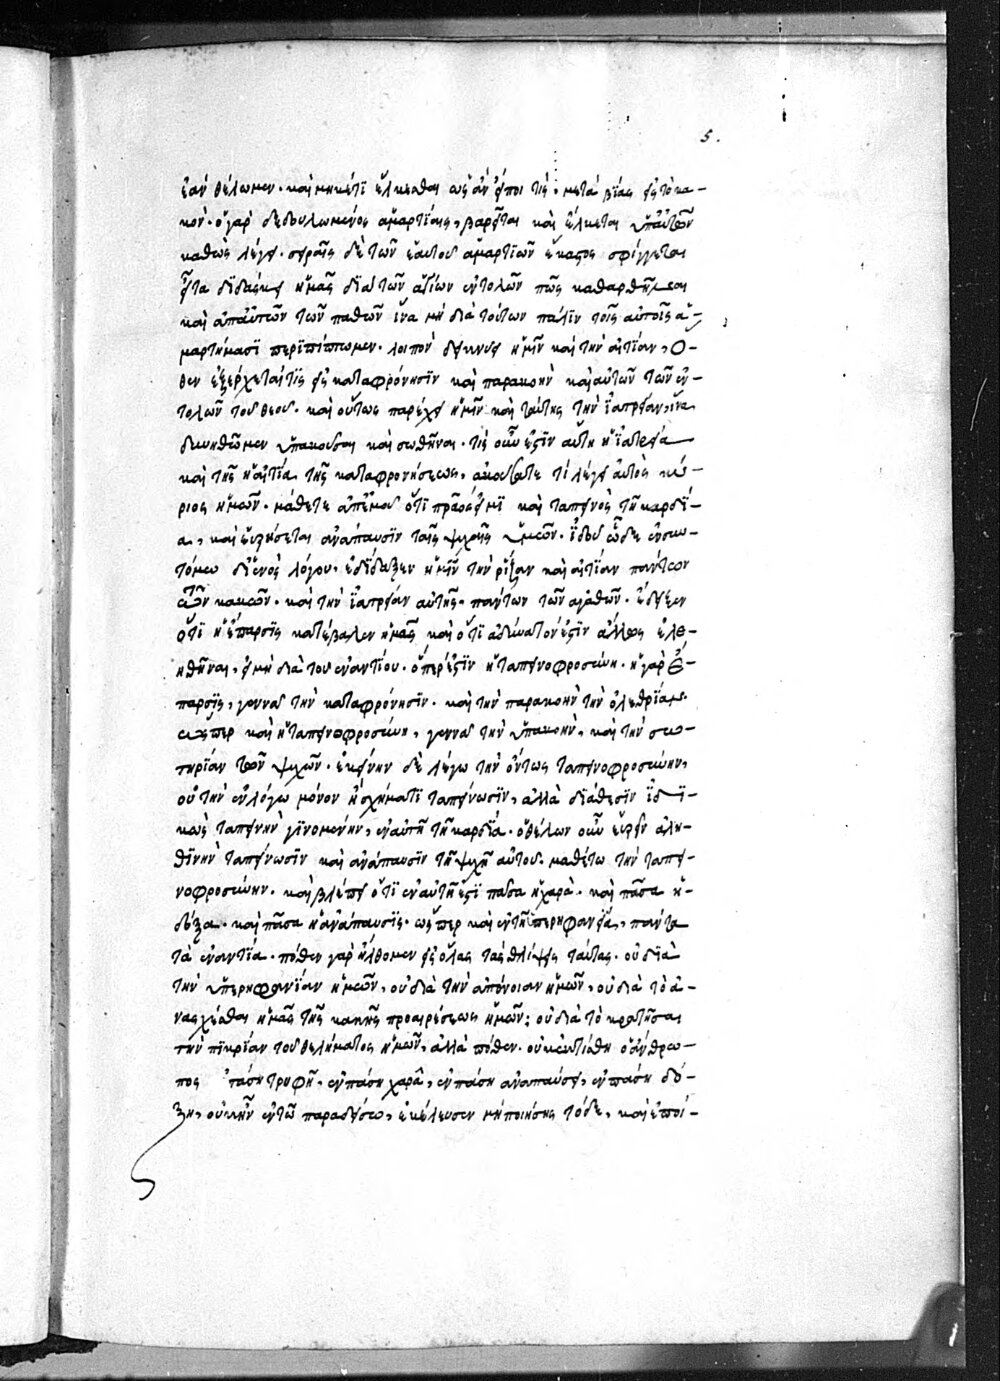 5.
ἐὰν θέλωμεν· καὶ μηκέτι ἕλκεσθαι ὡς ἂν εἴποι τίς· μετὰ βίας εἰς τὸ κα-
κόν· ὁ γὰρ δεδουλωμένος ἁμαρτίαις, βαρεῖται καὶ ἕλκεται ὑπ' αὐτῶν
καθὼς λέγει· σειραῖς δὲ τῶν ἑαυτοῦ ἁμαρτιῶν ἕκαστος σφίγγεται
εἶτα διδάσκει ἡμᾶς διὰ τῶν ἁγίων ἐντολῶν πῶς καθαρθῆναι
καὶ ἀπ' αὐτῶν τῶν παθῶν ἵνα μὴ διὰ τούτων πάλιν τοῖς αὐτοῖς ἁ-
μαρτήμασι περιπίπτωμεν· λοιπὸν δείκνυσιν ἡμῖν καὶ τὴν αἰτίαν, ὅ-
θεν ἐξέρχεταί τις εἰς καταφρόνησιν καὶ παρακοὴν καὶ αὐτῶν τῶν ἐν-
τολῶν τοῦ θεοῦ· καὶ οὕτως παρέχει ἡμῖν καὶ ταύτης τὴν ἰατρείαν, ἵνα
δυνηθῶμεν ὑπακοῦσαι καὶ σωθῆναι· τίς οὖν ἐστιν αὕτη ἡ ἰατρεία
καὶ τῆς ἡ αἰτία τῆς καταφρονήσεως, ἀκούσατε τί λέγει αὐτὸς κύ-
ριος ἡμῶν· μάθετε ἀπ' ἐμοῦ ὅτι πρᾶός εἰμι καὶ ταπεινὸς τῇ καρδί-
α, καὶ εὑρήσεται ἀνάπαυσιν ταῖς ψυχαῖς ὑμῶν· ἰδοὺ ὧδε ἐν συν-
τόμω δι' ἑνὸς λόγου, ἐδίδαξεν ἡμῖν τὴν ῥίζαν καὶ αἰτίαν πάντων
τῶν κακῶν· καὶ τὴν ἰατρείαν αὐτῆς· πάντων τῶν ἀγαθῶν· ἔδειξεν
ὅτι ἡ ἔπαρσις κατέβαλεν ἡμᾶς καὶ ὅτι ἀδύνατόν ἐστιν ἄλλως ἐλε-
ηθῆναι, εἰ μὴ διὰ τοῦ ἐναντίου· ὅπερ ἐστὶν ἡ ταπεινοφροσύνη· ἡ γὰρ ἔ-
παρσις, γεννᾶ τὴν καταφρόνησιν· καὶ τὴν παρακοὴν τὴν ὀλεθρίαν
ὥσπερ καὶ ἡ ταπεινοφροσύνη, γεννᾶ τὴν ὑπακοὴν, καὶ τὴν σω-
τηρίαν τῶν ψυχῶν· ἐκείνην δὲ λέγω τὴν ὄντως ταπεινοφροσύνην,
οὐ τὴν ἐν λόγω μόνον ἢ σχήματι ταπείνωσιν, ἀλλὰ διάθεσιν ἰδι-
κῶς ταπεινὴν γινομένην, ἐν αὐτῆ τῆ καρδία· ὁ θέλων οὖν εὑρεῖν ἀλη-
θινὴν ταπείνωσιν καὶ ἀνάπαυσιν τῆ ψυχῆ αὐτοῦ· μαθέτω τὴν ταπει-
νοφροσύνην· καὶ βλέπει ὅτι ἐν αὐτῆ ἐστὶ πᾶσα ἡ χαρὰ· καὶ πᾶσα ἡ
δόξα· καὶ πᾶσα ἡ ἀνάπαυσις· ὥσπερ καὶ ἐν τῆ ὑπερηφανία, πάντα
τὰ ἐναντία· πόθεν γὰρ ἤλθομεν εἰς ὅλας τὰς θλίψεις ταύτας· οὐ διὰ
τὴν ὑπερηφανίαν ἡμῶν, οὐ διὰ τὴν ἀπόνοιαν ἡμῶν, οὐ διὰ τὸ ἀ-
νασχέσθαι ἡμᾶς τῆς κακῆς προαιρέσεως ἡμῶν; οὐ διὰ τὸ κρατῆσαι
τὴν πικρίαν τοῦ θελήματος ἡμῶν, ἀλλὰ πόθεν· οὐκ ἐκτίσθη ὁ ἄνθρω-
πος πάση τρυφῆ, ἐν πάση χαρᾶ, ἐν πάση ἀναπαύσει, ἐν πάση δό-
ξη, οὐκ ἦν ἐν τῶ παραδείσω, ἐκέλευσεν μὴ ποιήσης τόδε, καὶ ἐποί-